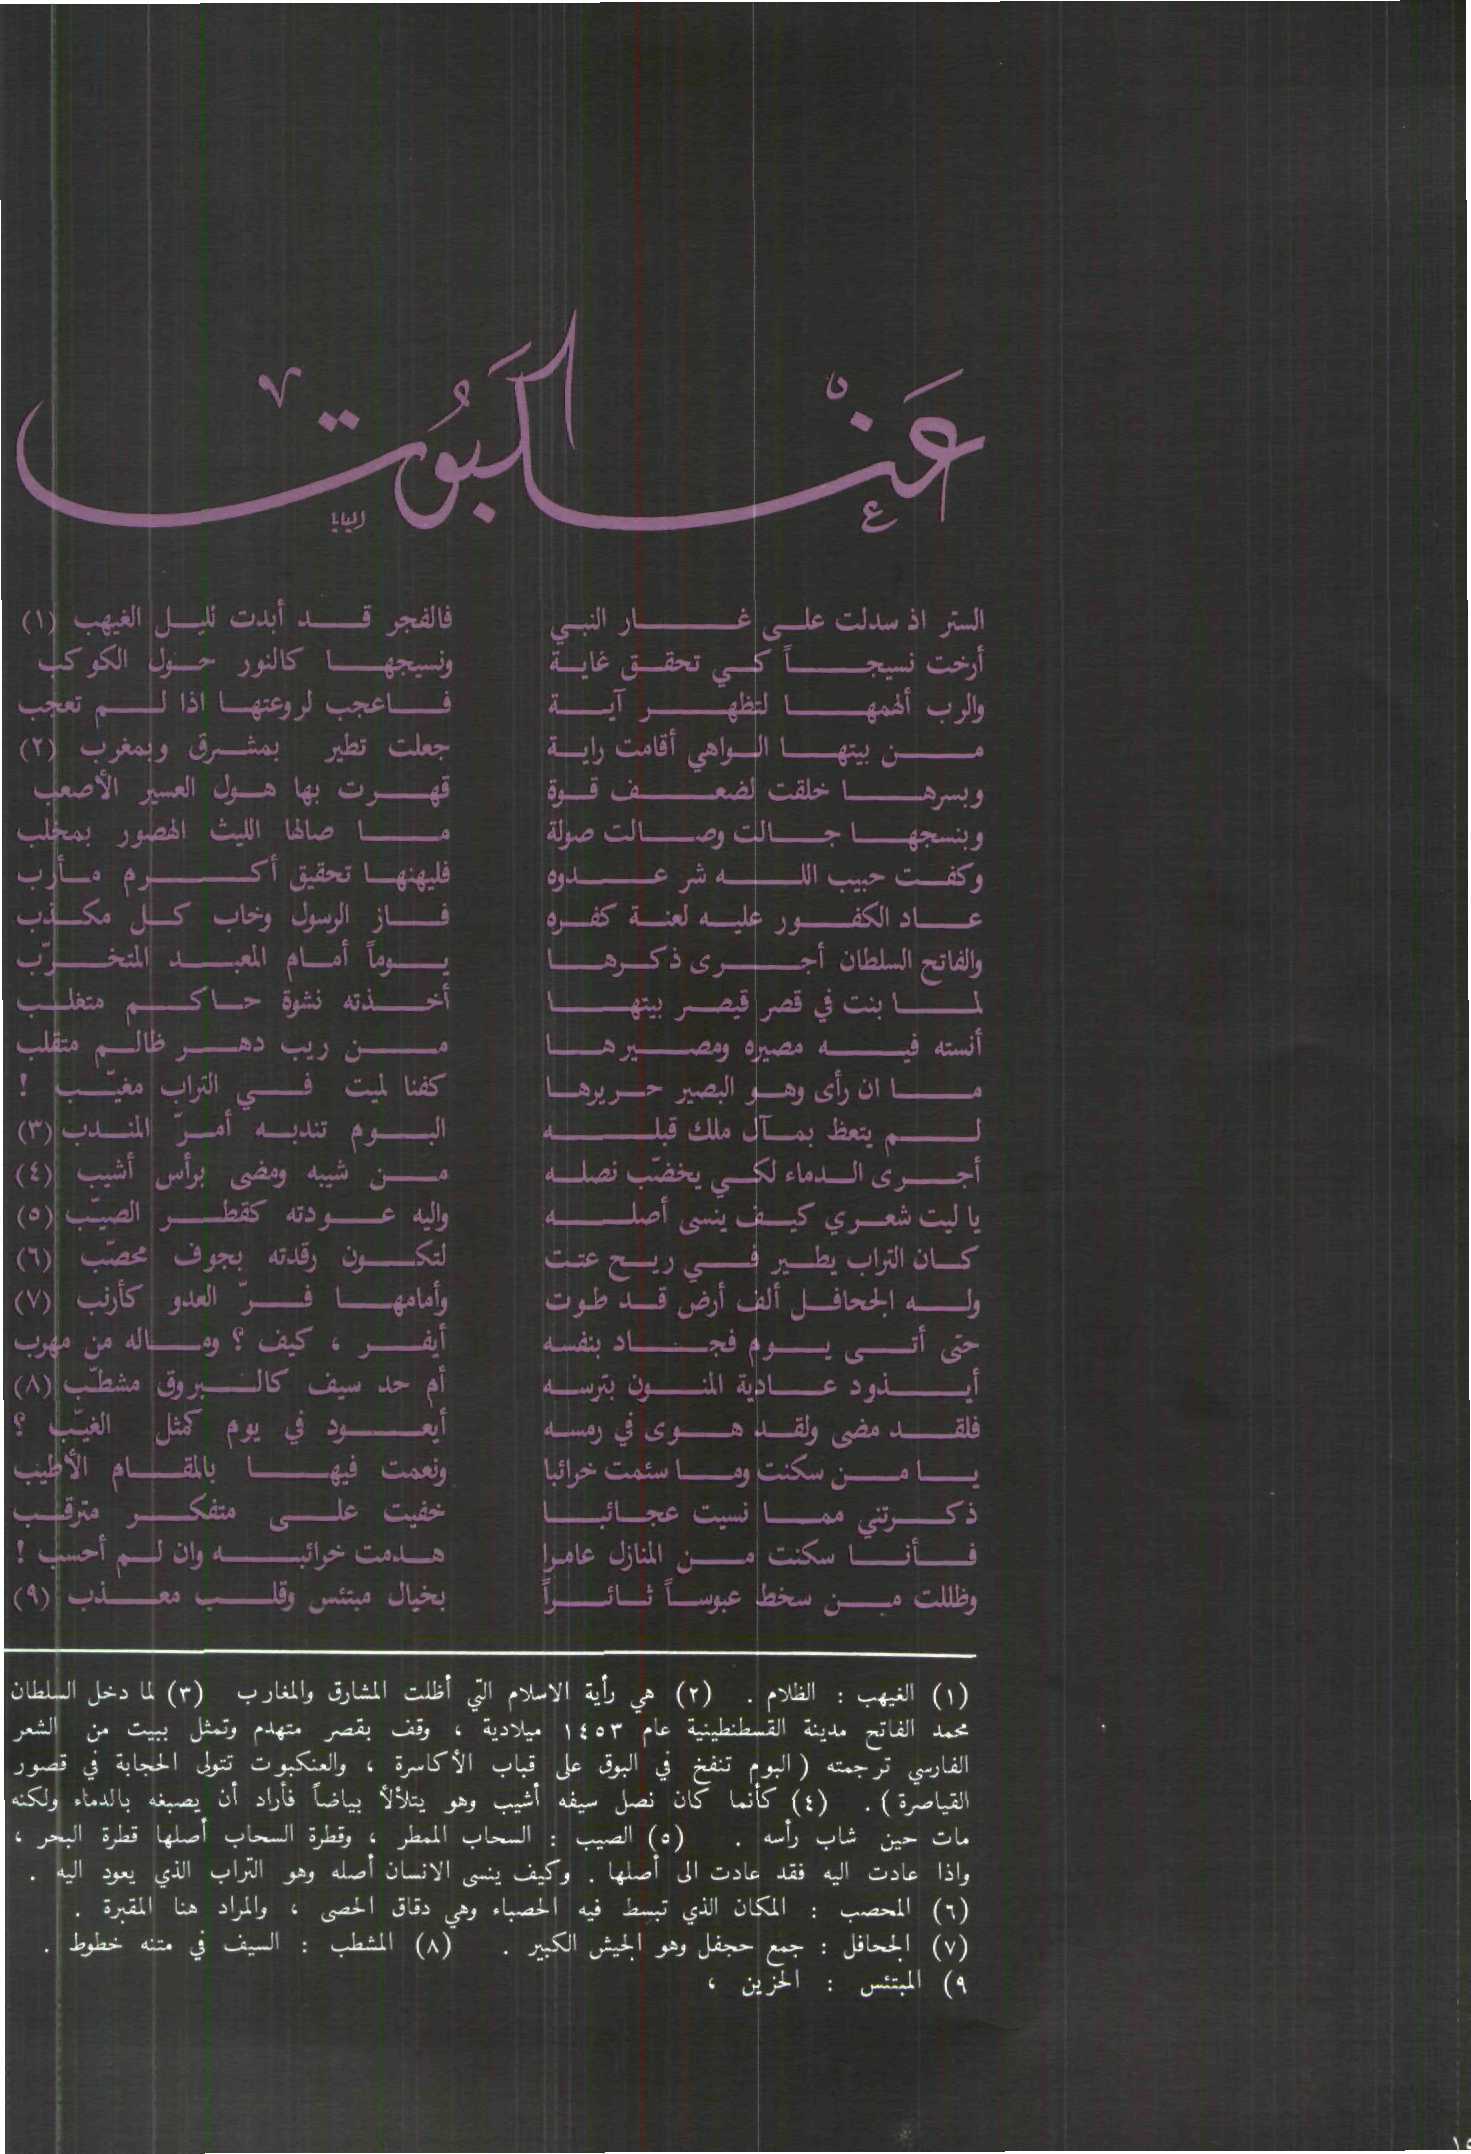 عَنكبُوت
الستر اذ سدلت على غار النبي فالفجر قد أبدت لليل الغيهب (١)
أرخت نسيجاً كي تحقق غاية ونسيجها كالنور حول الكوكب
والرب ألهمها لتظهر آية فاعجب لروعتها اذا لم تعجب
من بيتها الواهي أقامت راية جعلت تطير بمشرق وبمغرب (٢)
وبسرها خلقت لضعف قوة قهرت بها هول العسير الأصعب
وبنسجها جالت وصالت صولة ما صالها الليث الهصور بمخلب
وكفت حبيب الله شر عدوه فليهنها تحقيق أكرم مأرب
عاد الكفور عليه لعنة كفره فاز الرسول وخاب كل مكذب
والفاتح السلطان أجرى ذكرها يوماً أمام المعبد المتخرّب
لما بنت في قصر قيصر بيتها أخذته نشوة حاكم متغلب
أنسته فيه مصيره ومصيرها من ريب دهر ظالم متقلب
ما ان رأى وهو البصير حريرها كفنا لميت في التراب مغيّب !
لم يتعظ بمآل ملك قبله البوم تندبه أمرّ المندب (٣)
أجرى الدماء لكي يخضّب نصله من شيبه ومضى برأس أشيب (٤)
يا ليت شعري كيف ينسى أصله واليه عودته كقطر الصيّب (٥)
كان التراب يطير في ريح عتت لتكون رقدته بجوف محصّب (٦)
وله الجحافل ألف أرض قد طوت وأمامها فرّ العدو كأرنب (٧)
حتى أتى يوم فجاد بنفسه أيفر ، كيف ؟ وماله من مهرب
أيذود عادية المنون بترسه أم حد سيف كالبروق مشطّب (٨)
فلقد مضى ولقد هوى في رمسه أيعود في يوم كمثل الغيّب ؟
يا من سكنت وما سئمت خرائبا ونعمت فيها بالمقام الأطيب
ذكرتني مما نسيت عجائبا خفيت على متفكر مترقب
فأنا سكنت من المنازل عامرا هدمت خرائبه وان لم أحسب !
وظللت من سخط عبوساً ثائراً بخيال مبتئس وقلب معذب (٩)
(١) الغيهب : الظلام . (٢) هي رأية الاسلام التي أظلت المشارق والمغارب (٣) لما دخل السلطان
محمد الفاتح مدينة القسطنطينية عام ١٤٥٣ ميلادية ، وقف بقصر متهدم وتمثل ببيت من الشعر
الفارسي ترجمته (البوم تنفخ في البوق على قباب الأكاسرة ، والعنكبوت تتولى الحجابة في قصور
القياصرة) . (٤) كأنما كان نصل سيفه أشيب وهو يتلألأ بياضاً فأراد أن يصبغه بالدماء ولكنه
مات حين شاب رأسه . (٥) الصيب : السحاب الممطر ، وقطرة السحاب أصلها قطرة البحر ،
واذا عادت اليه فقد عادت الى أصلها . وكيف ينسى الانسان أصله وهو التراب الذي يعود اليه .
(٦) المحصب : المكان الذي تبسط فيه الحصباء وهي دقاق الحصى ، والمراد هنا المقبرة .
(٧) الجحافل : جمع حجفل وهو الجيش الكبير . (٨) المشطب : السيف في متنه خطوط .
٩) المبتئس : الحزين ،